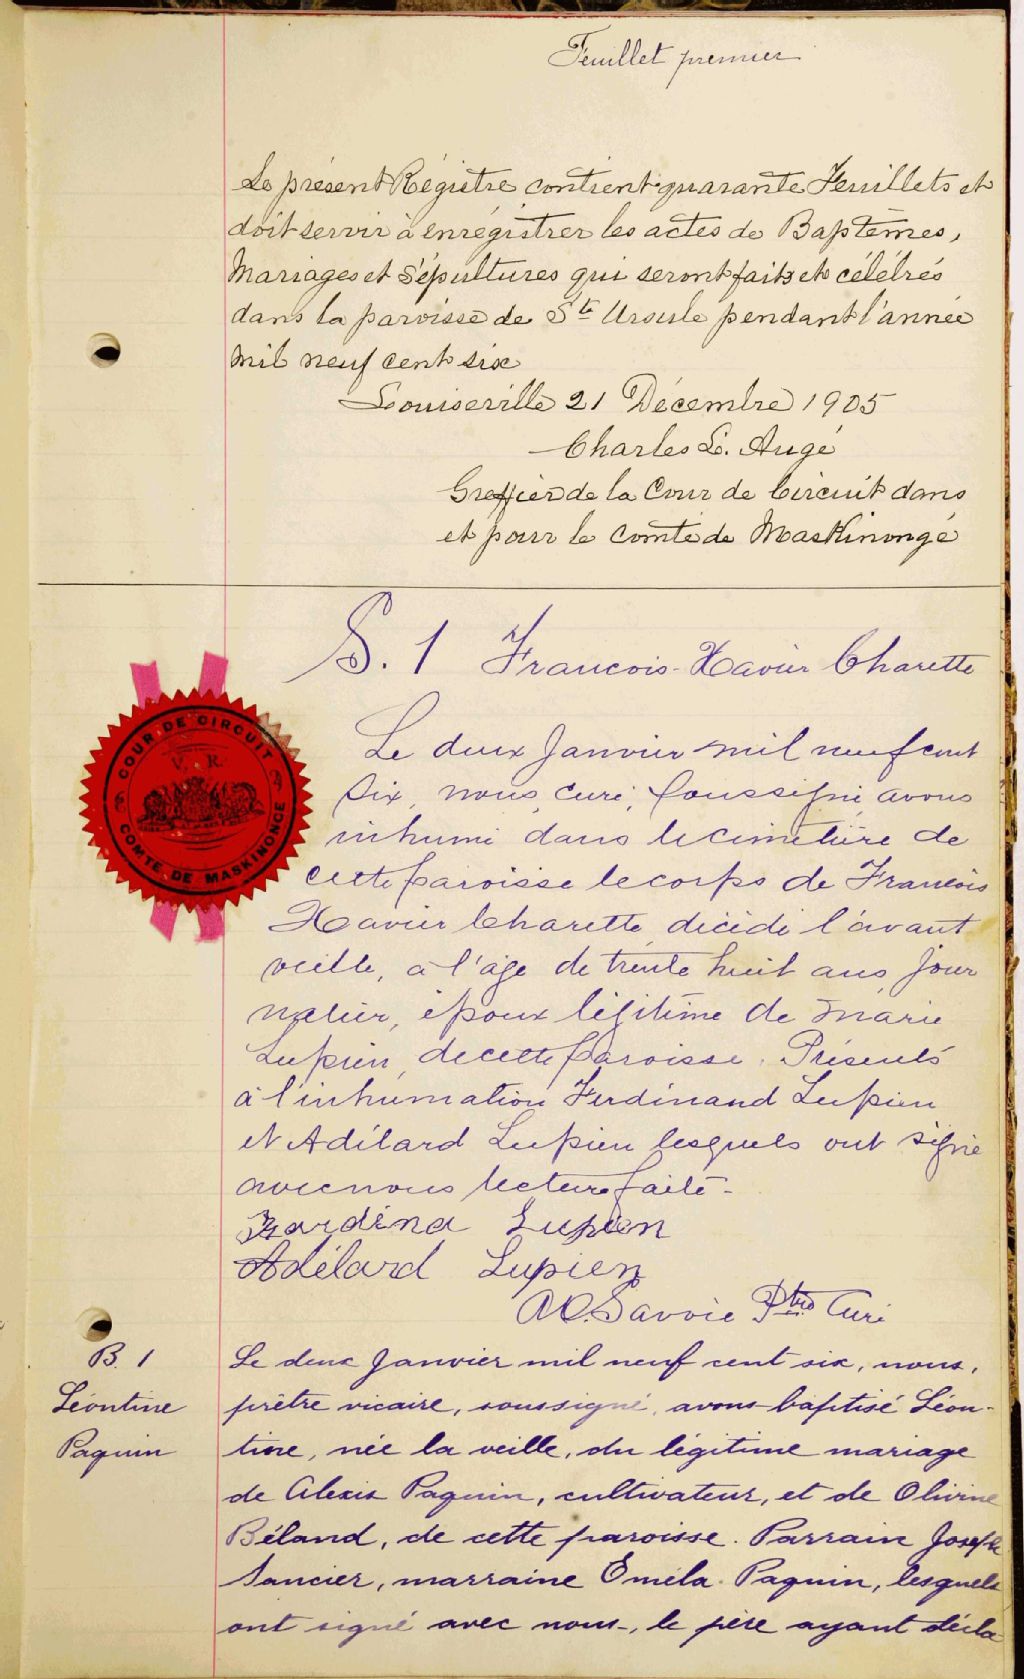 Feuillet premier
Le présent Régistre contient quarante Feuillets et
doit servir à enrégistrer les actes de Baptêmes,
Mariages et Sépultures qui seront faits et célébrés
dans la paroisse de Ste Ursule pendant l'année
mil neuf cent six
Louiseville 21 Décembre 1905
Charles L. Augé
Greffier de la Cour de Circuit dans
et pour le Comté de Maskinongé
S. 1 Francois-Xavier Charette
COUR DE CIRCUIT
V. R.
COMTÉ DE MASKINONGE
Le deux Janvier mil neuf cent
six, nous, curé, soussigné avons
inhumé dans le cimetière de
cette paroisse le corps de Francois
Xavier Charette, décédé l'avant
veille, à l'âge de trente huit ans, jour
nalier, époux légitime de Marie
Lupien, de cette paroisse. Présents
à l'inhumation Ferdinand Lupien
et Adélard Lupien lesquels ont signé
avec nous lecture faite -
Fardina Lupien
Adélard Lupien
Savoie Ptre Curé
B. 1
Léontine
Paquin
Le deux Janvier mil neuf cent six, nous,
prêtre vicaire, soussigné, avons baptisé Léon-
tine, née la veille, du légitime mariage
de Alexis Paquin, cultivateur, et de Olivine
Béland, de cette paroisse. Parrain Joseph
Sancier, marraine Eméla Paquin, lesquels
ont signé avec nous, le père ayant décla